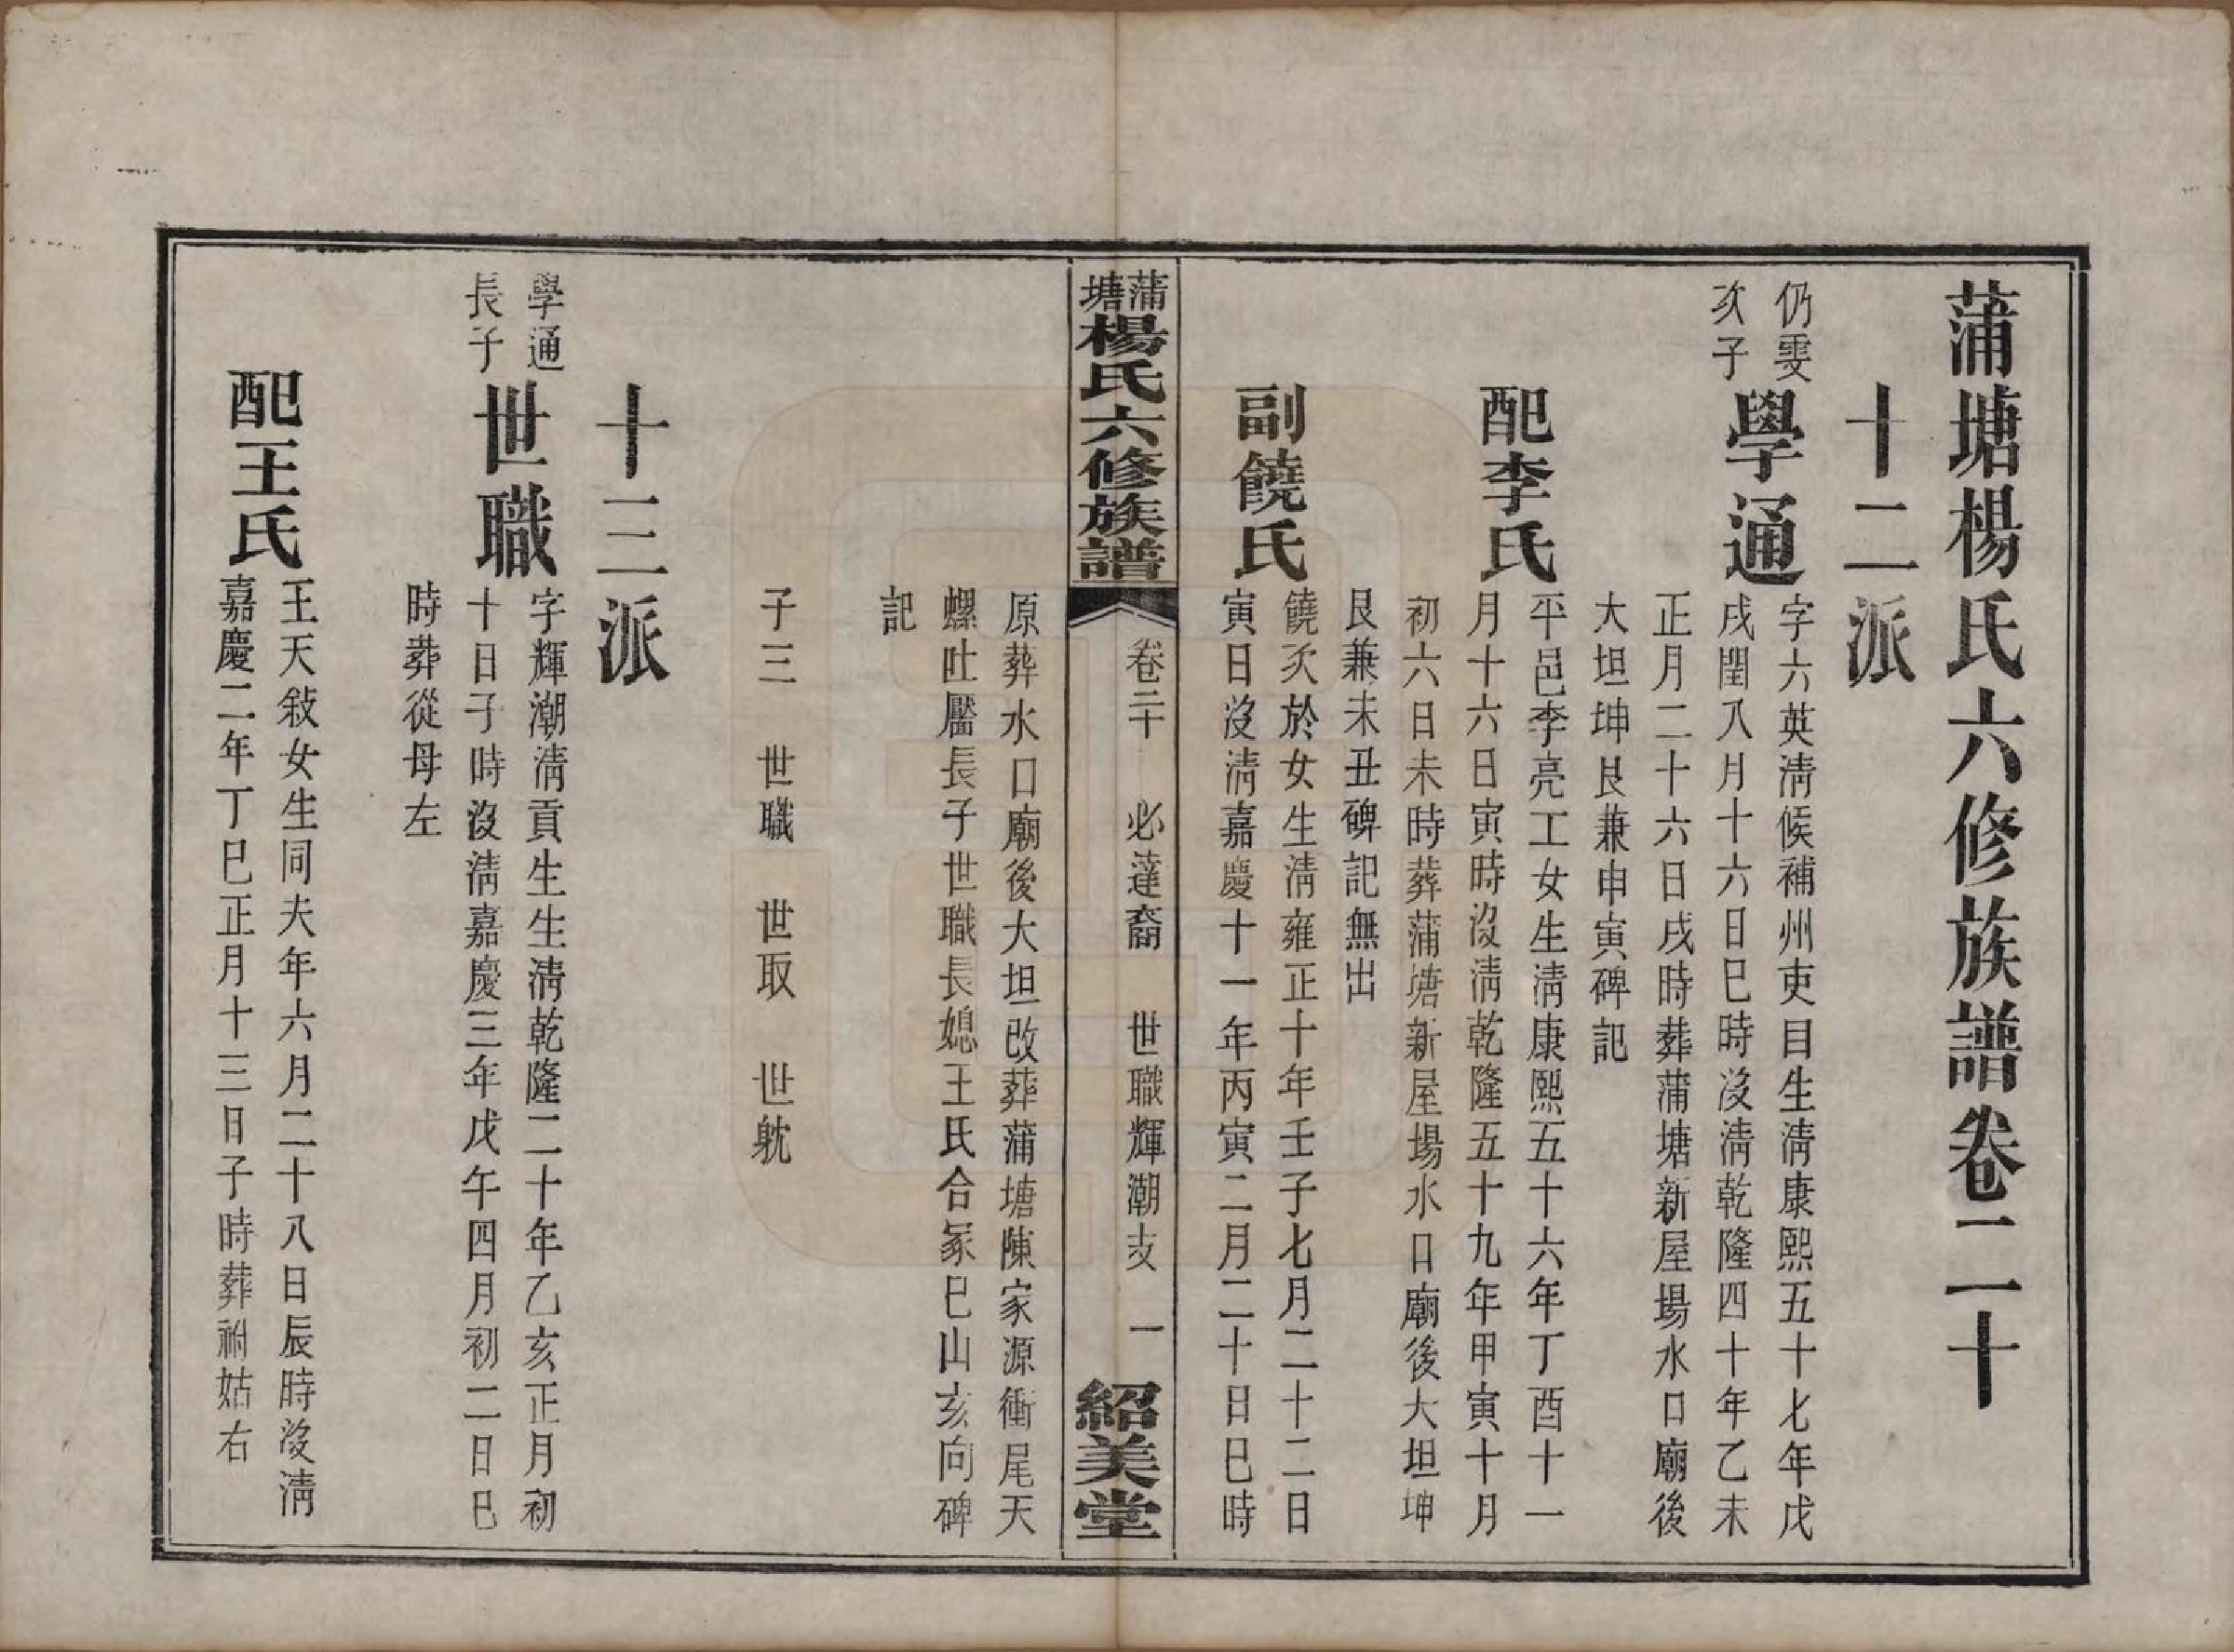 蒲塘楊氏六修族譜卷二十
十二派
仍雯
次子
學通
字六英淸候補州吏目生淸康熙五十七年戊
戌閏八月十六日巳時沒淸乾隆四十年乙未
正月二十六日戌時葬蒲塘新屋場水口廟後
大坦坤艮兼申寅碑記
配李氏
平邑李亮工女生淸康熙五十六年丁酉十一
月十六日寅時沒淸乾隆五十九年甲寅十月
初六日未時葬蒲塘新屋場水口廟後大坦坤
艮兼未丑碑記無出
副饒氏
饒於女生淸雍正十年壬子七月二十二日
寅日沒淸嘉慶十一年丙寅二月二十日巳時
蒲塘楊氏六修族譜
卷二十 必達裔 世職輝潮支 一
紹美堂
原葬水口廟後大坦改葬蒲塘陳家源衝尾天
螺吐靨長子世職長媳王氏合冢巳山亥向碑
記
子三 世職 世取 世躭
十三派
學通
長子
世職
字輝潮淸貢生生淸乾隆二十年乙亥正月初
十日子時沒淸嘉慶三年戊午四月初二日巳
時葬從母左
配王氏
王天敍女生同夫年六月二十八日辰時沒淸
嘉慶二年丁巳正月十三日子時葬祔姑右